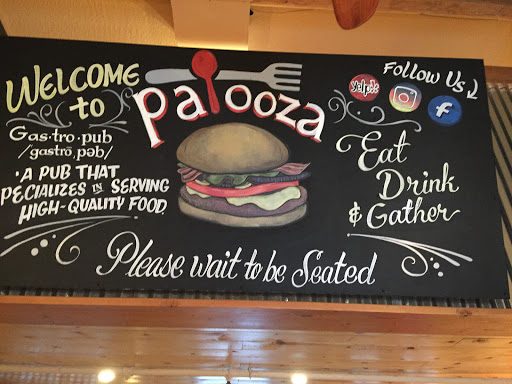 WELCOME
to
palooza
Gas·tro·pub
/gastrō,pəb/
·A PUB THAT
PECIALIZES IN SERVING
HIGH-QUALITY FOOD
Follow Us
yelp
Eat
Drink
& Gather
Please wait to be Seated